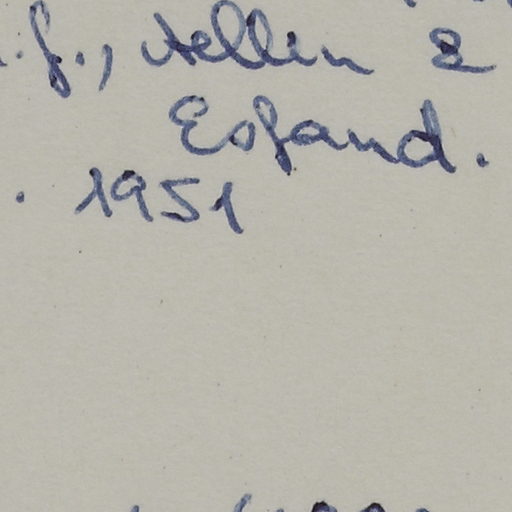 f., Aellen &
Esfand.
. 1951